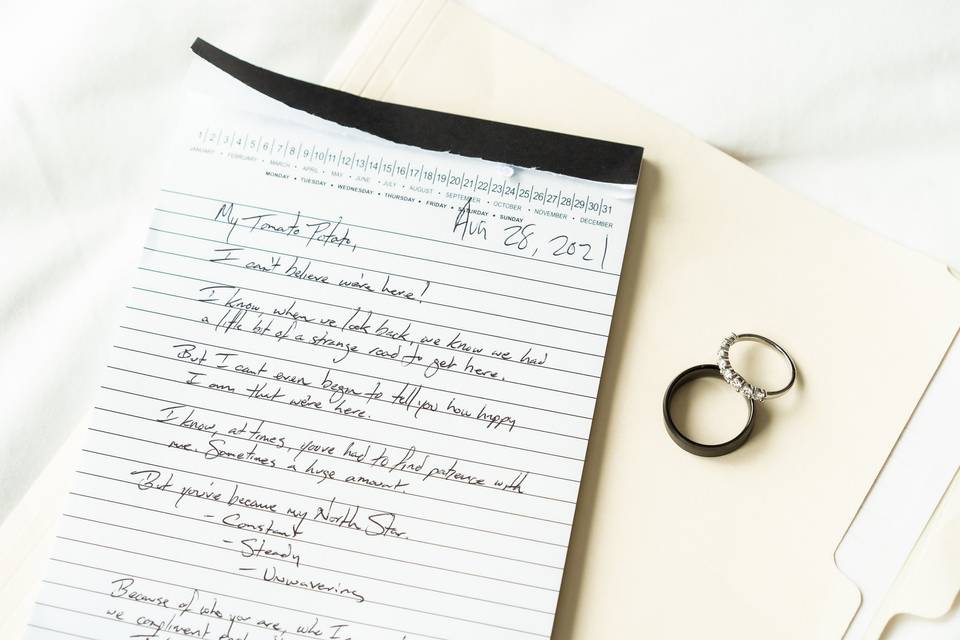 1|2|3|4|5|6|7|8|9|10|11|12|13|14|15|16|17|18|19|20|21|22|23|24|25|26|27|28|29|30|31
JANUARY • FEBRUARY • MARCH • APRIL • MAY • JUNE • JULY • AUGUST • SEPTEMBER • OCTOBER • NOVEMBER • DECEMBER
MONDAY • TUESDAY • WEDNESDAY • THURSDAY • FRIDAY • SATURDAY • SUNDAY
Aug 28, 2021
My Tomato Potato,
I can't believe we're here!
I know, when we look back, we know we had
a little bit of a strange road to get here.
But I can't even begin to tell you how happy
I am that we're here.
I know, at times, you've had to find patience with
me. Sometimes a huge amount.
But you've become my North Star.
- Constant
- Steady
- Unwavering
Because of who you are, who I
we compliment each